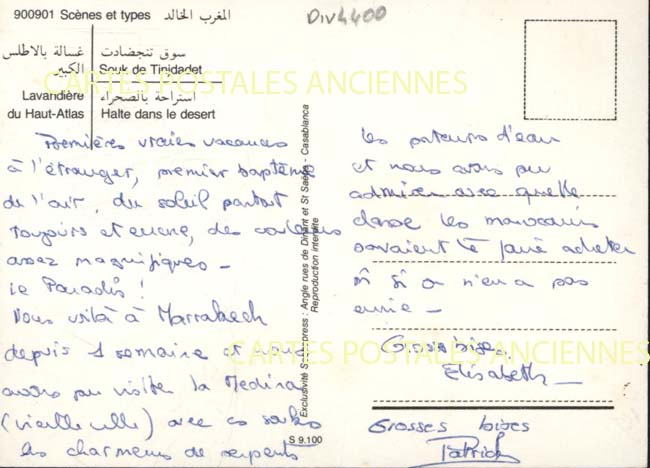 900901 Scènes et types المغرب الخالد
Div4400
غسالة بالاطلس
الكبير
سوق تنجضادت
Souk de Tinjdadet
Lavandière
du Haut-Atlas
استراحة بالصحراء
Halte dans le desert
CARTES POSTALES ANCIENNES
Premières vraies vacances
à l'étranger, premier baptême
de l'air, du soleil partout
toujours et encore, des couleurs
assez magnifiques -
le Paradis !
Nous voilà à Marrakech
depuis 1 semaine et nous
avons pu visiter la Medina
(vieille ville) avec ces souks
les charmeurs de serpents
Exclusivité Starcpress : Angle rues de Dinant et St Saëns - Casablanca
Reproduction interdite
S 9.100
les porteurs d'eau
et nous avons pu
admirer avec quelle
classe les marocains
savaient te faire acheter
m si on n'en a pas
envie -
CARTES POSTALES ANCIENNES
Grosse bises
Elisabeth
Grosses bises
Patrick